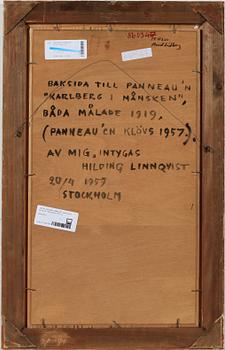 BAKSIDA TILL PANNEAU'N
"KARLBERG I MÅNSKEN",
BÅDA MÅLADE 1919.
(PANNEAU'EN KLÖVS 1957)
AV MIG, INTYGAS
HILDING LINNQVIST
20/4 1959
STOCKHOLM